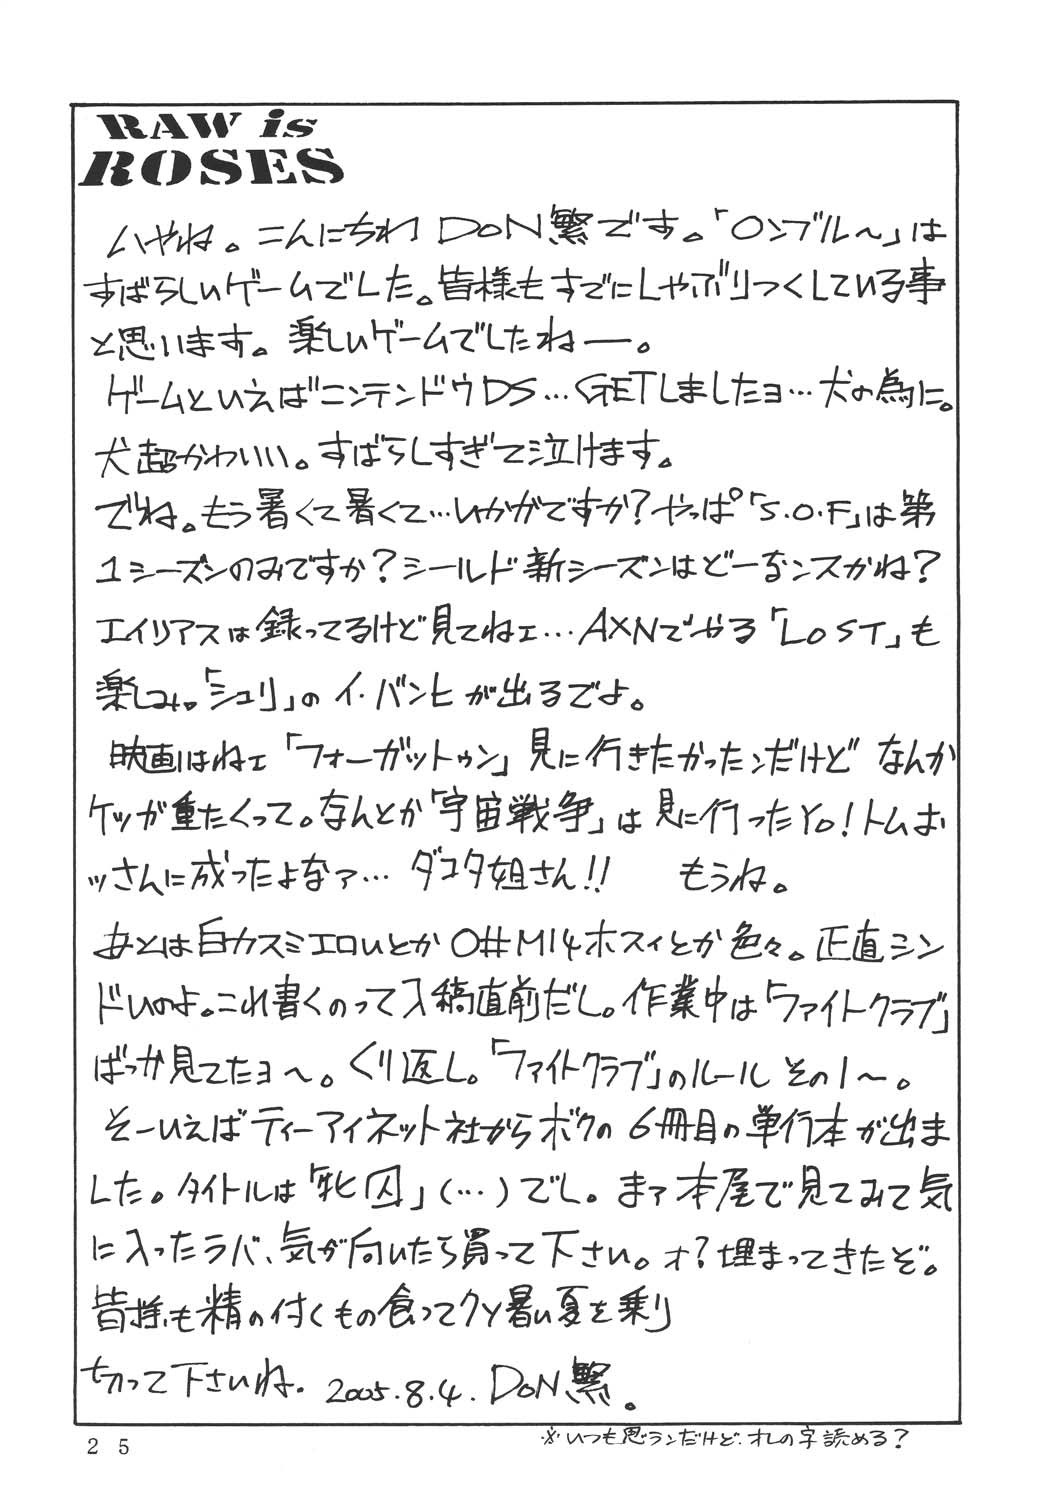 RAW is
ROSES
ハヤね。こんにちわ DoN繁です。「ワンダ〜」は
すばらしいゲームでした。皆様もすでにしゃぶりつくしている事
と思います。楽しいゲームでしたねー。
ゲームといえばニンテンドウDS…GETしましたョ…犬の為に。
犬超かわいい。すばらしすぎて泣けます。
でね。もう暑くて暑くて…いかがですか?やっぱ「S.O.F」は第
1シーズンのみですか?シールド新シーズンはどーなンスかね?
エイリアスは録ってるけど見てねェ…AXNでやる「LOST」も
楽しみ。「シュリ」のイ・バンヒが出るでよ。
映画はねェ「フォーガットゥン」見に行きたかったンだけど なんか
ケツが重たくって。なんとか「宇宙戦争」は見に行ったYo!トムお
ッさんに成ったよなァ… ダコタ姐さん!! もうね。
あとは白カスミエロいとか O#M14ホスィとか色々。正直シン
ドいのよ。これ書くのって入稿直前だし。作業中は「ファイトクラブ」
ばっか見てたョ〜。くり返し。「ファイトクラブ」のルール その1〜。
そーいえばティーアイネット社からボクの6冊目の単行本が出ま
した。タイトルは「牝囚」(…)でし。まァ本屋で見てみて気
に入ったラバ、気が向いたら買って下さい。オ?埋まってきたぞ。
皆様も精の付くもの食ってクソ暑い夏を乗り
切って下さいね。2005.8.4. DoN繁。
※いつも思うンだけど、オレの字読める?
25